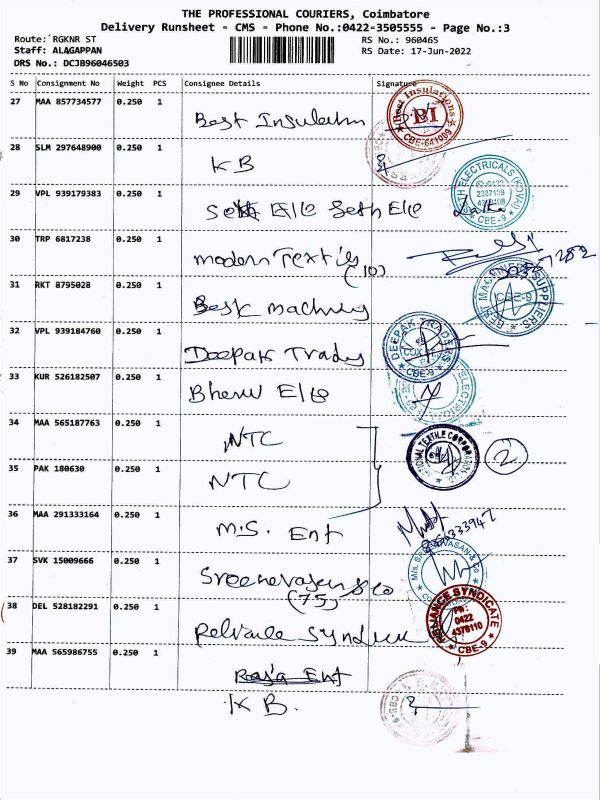 THE PROFESSIONAL COURIERS, Coimbatore
Delivery Runsheet - CMS - Phone No.:0422-3505555 - Page No.:3
Route: RGKNR ST
RS No.: 960465
Staff: ALAGAPPAN
RS Date: 17-Jun-2022
DRS No.: DCJB96046503
S No Consignment No Weight PCS Consignee Details Signature
27 MAA 857734577 0.250 1
Best Insulation
Best Insulations BI CBE-641009
28 SLM 297648900 0.250 1
KB
29 VPL 939179383 0.250 1
Seth Elle Seth Ele
SETH ELECTRICALS (KOVAI) 0422 2387109 CBE-9
30 TRP 6817238 0.250 1
modern Textils
(10)
31 RKT 8795028 0.250 1
Best machinery
BEST MACHINERY SUPPLIERS CBE-9
32 VPL 939184760 0.250 1
Deepak Traders
DEEPAK TRADERS CBE-9
33 KUR 526182507 0.250 1
Bheru Elle
34 MAA 565187763 0.250 1
NTC
NATIONAL TEXTILE CORPORATION
2
35 PAK 180630 0.250 1
NTC
36 MAA 291333164 0.250 1
M.S. Ent
37 SVK 15009666 0.250 1
Sreenevasan & co
(75)
38 DEL 528182291 0.250 1
Reliance Syndicate
RELIANCE SYNDICATE PH: 0422 4376110 CBE-9
39 MAA 565986755 0.250 1
Raja Ent
KB.